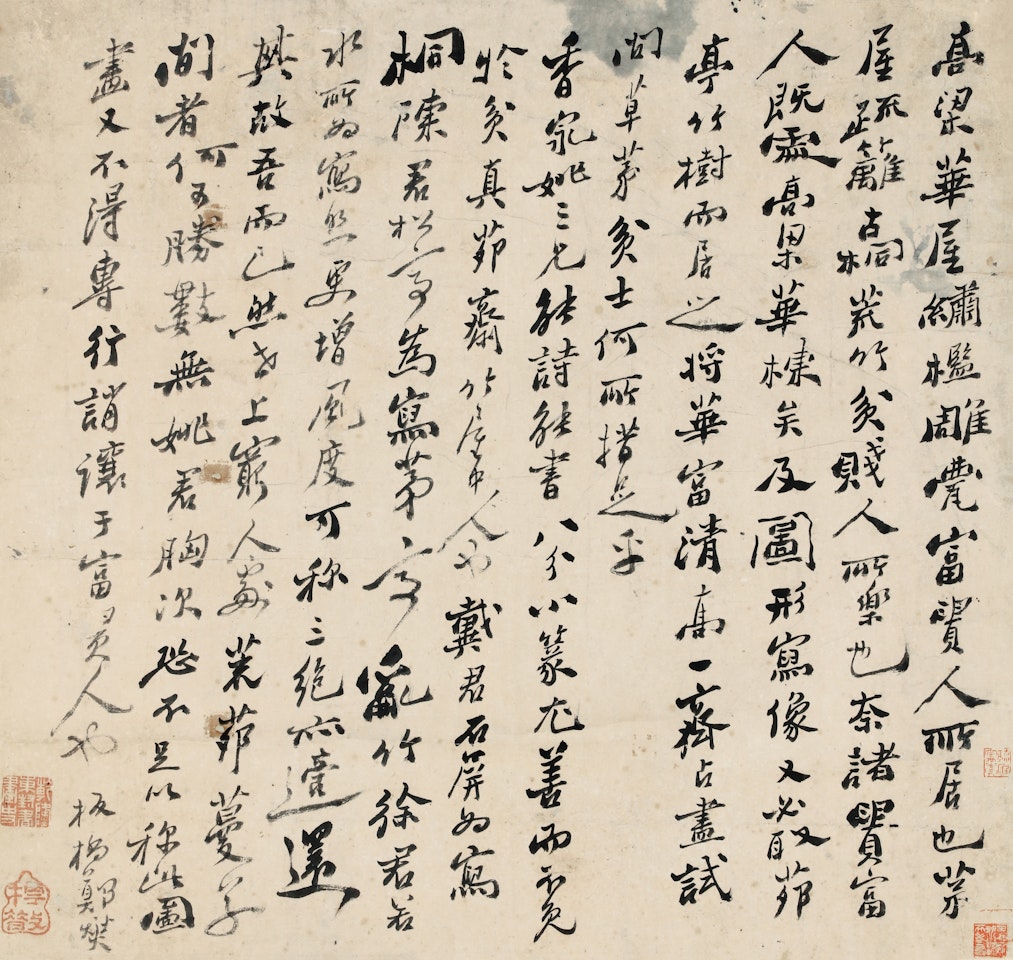 高梁華屋繡檻雕甍富貴人所居也茅
屋疏籬古桐荒竹貧賤人所樂也奈諸貴富
人既處高梁華棟矣及圖形寫像又必取茆
亭竹樹而居之將華富清高一齊占盡試
問草茅貧士何所措足乎
香泉姚三兄能詩能書八分小篆尤善而不免
於貧真茆齋竹屋中人也戴君石屏為寫
桐陳君松亭為寫茅亭亂竹徐君若
水所為寫照更增風度可称三絶亦適還
其故吾而已然世上窮人處茅茆蔓草
間者何可勝數無姚君胸次恐不足以称此圖
盡又不得專行誚讓于富貴人也
板橋鄭燮